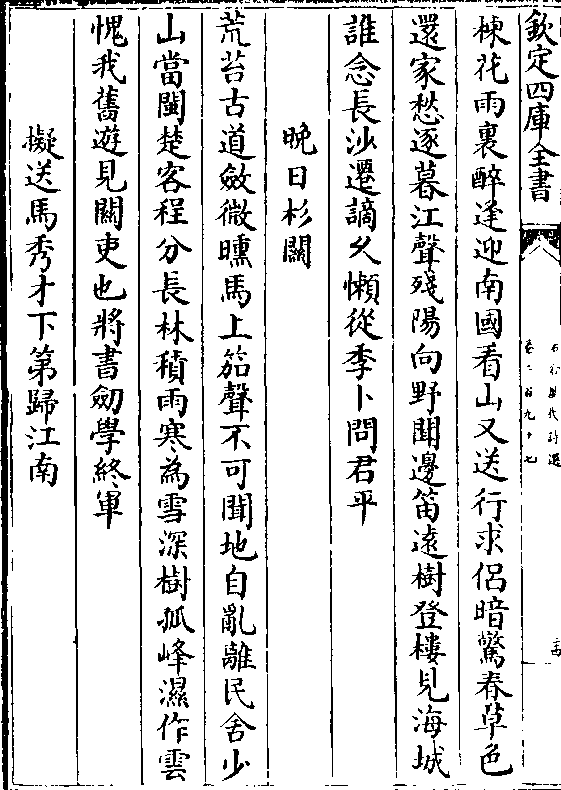 欽定四庫全書
石倉歷代詩選
卷二百九十七
楝花雨裏醉逢迎南國看山又送行求侶暗驚春草色
還家愁逐暮江聲殘陽向野聞邊笛遠樹登樓見海城
誰念長沙遷謫久懶從季卜問君平
晚日杉關
荒苔古道斂微曛馬上笳聲不可聞地自亂離民舍少
山當閩楚客程分長林積雨寒為雪深樹孤峰濕作雲
愧我舊遊見關吏也將書劒學終軍
擬送馬秀才下第歸江南